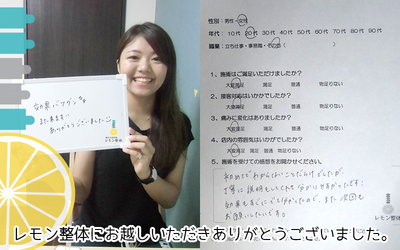 効果バツグン
また来ます!!
ありがとうございました
レモン整体
性別:男性・女性
年代:10代 20代 30代 40代 50代 60代 70代 80代 90代
職業:立ち仕事・事務職・その他(
1、施術はご満足いただけましたか?
大変満足 満足 普通 物足りない
2、接客対応はいかがでしたか?
大変満足 満足 普通 物足りない
3、痛みに変化はありましたか?
大変満足 満足 普通 物足りない
4、店内の雰囲気はいかがでしたか?
大変満足 満足 普通 物足りない
5、施術を受けての感想をお聞かせください。
初めてでわからないことだらけでしたが、
丁寧に説明もしてくれて分かりやすかったです!
効果もすぐにでてよかったので、また次回も
お願いしたいです。
レモン整体
レモン整体にお越しいただきありがとうございました。